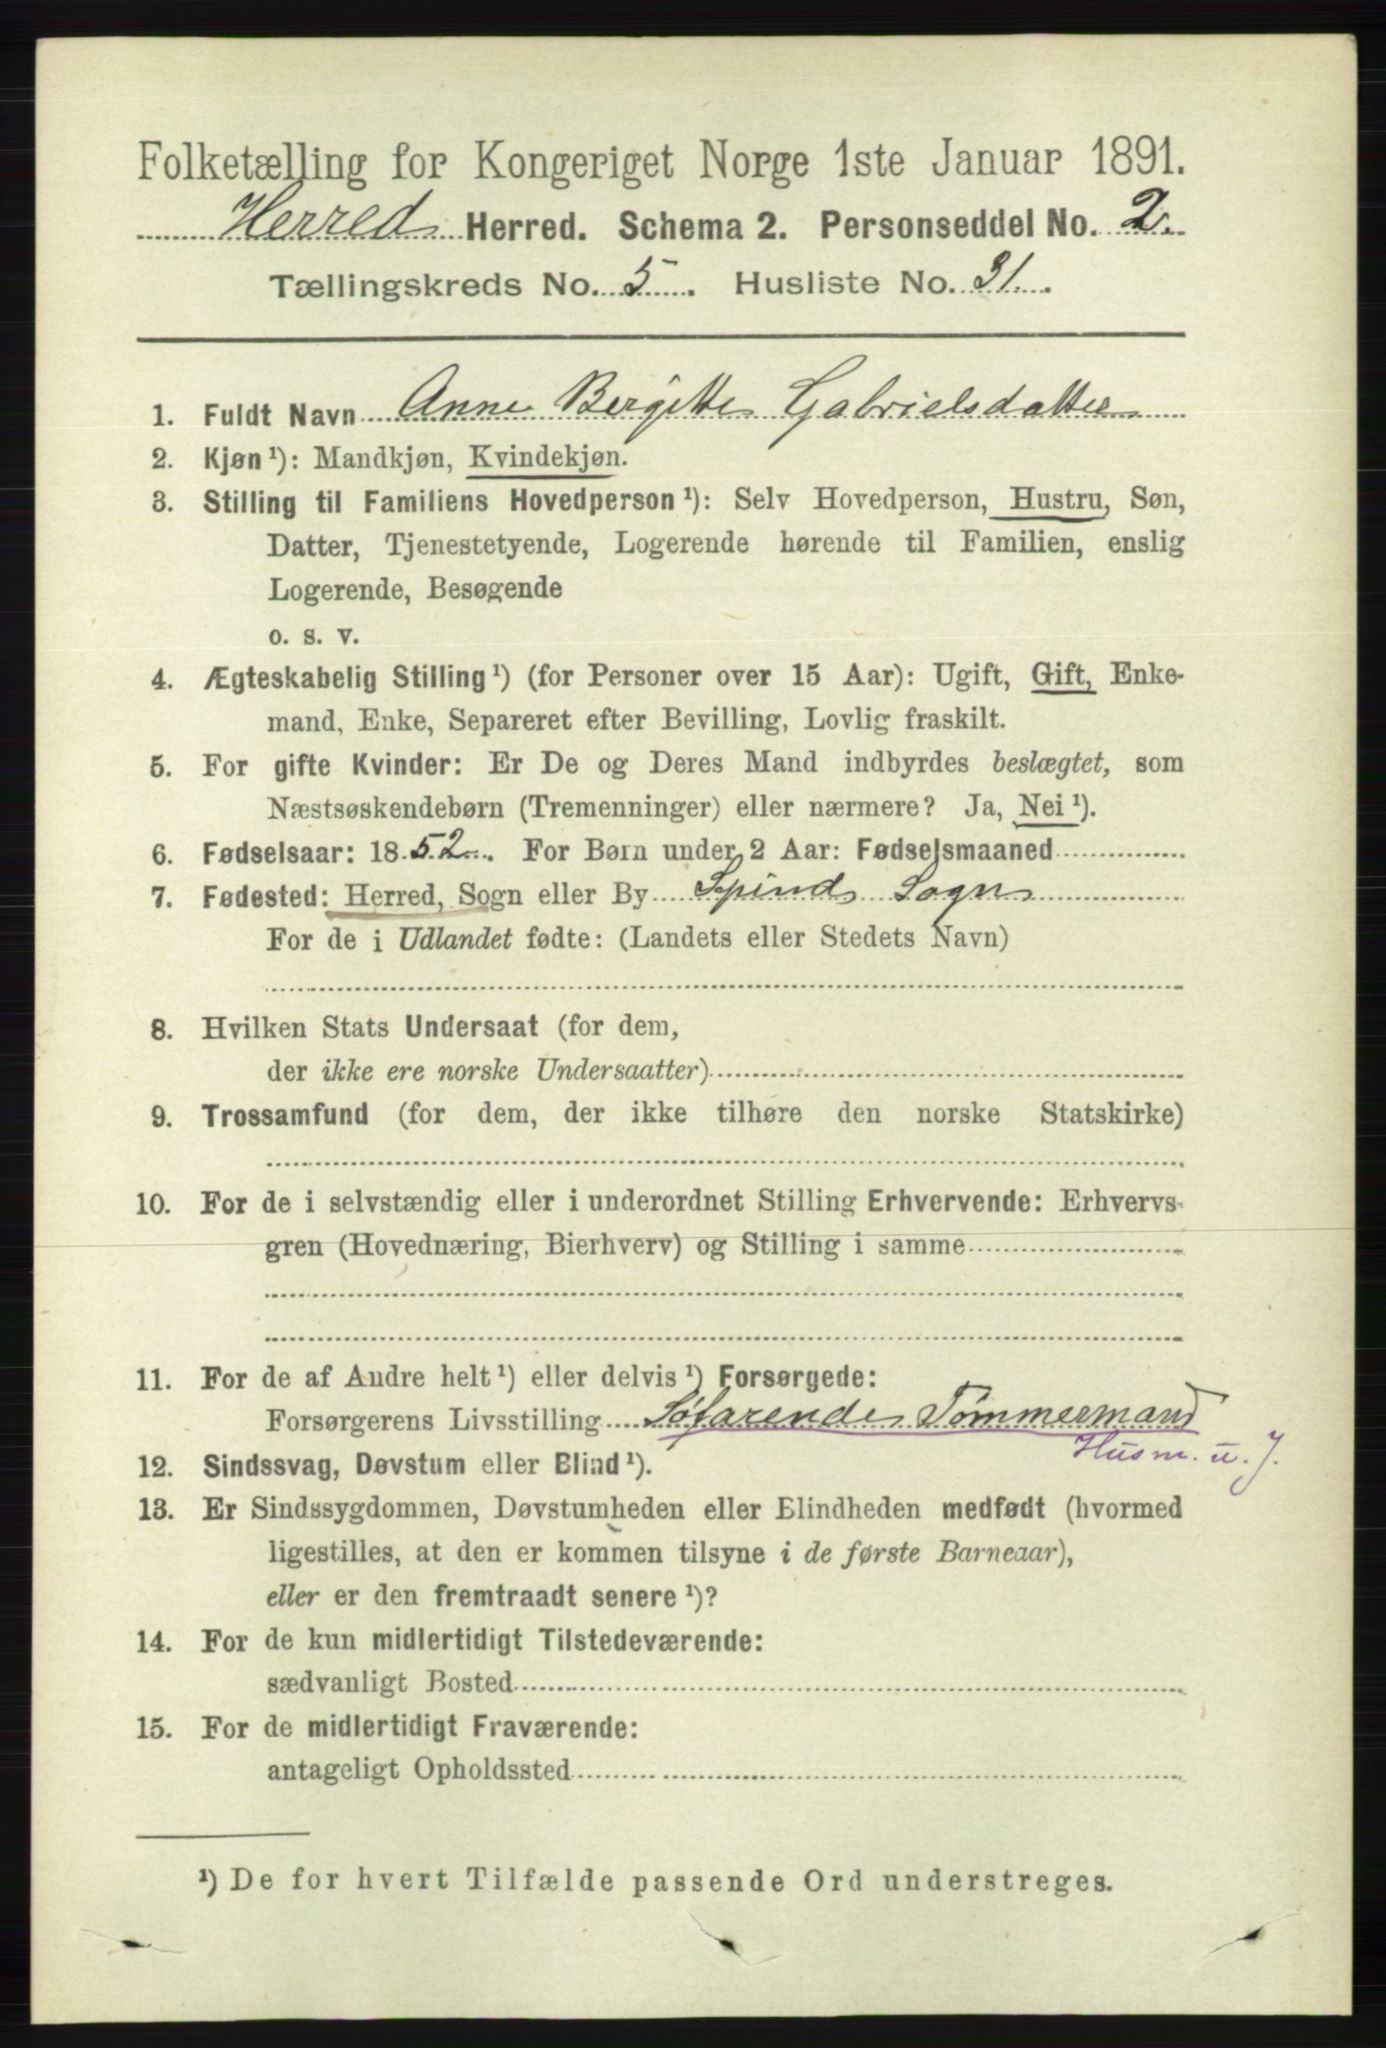 Folketælling for Kongeriget Norge 1ste Januar 1891.
Herred Herred. Schema 2. Personseddel No. 2.
Tællingskreds No. 5. Husliste No. 31.
1. Fuldt Navn Anne Bergitte Gabrielsdatter
2. Kjøn ¹): Mandkjøn, Kvindekjøn.
3. Stilling til Familiens Hovedperson ¹): Selv Hovedperson, Hustru, Søn,
Datter, Tjenestetyende, Logerende hørende til Familien, enslig
Logerende, Besøgende
o. s. v.
4. Ægteskabelig Stilling ¹) (for Personer over 15 Aar): Ugift, Gift, Enke-
mand, Enke, Separeret efter Bevilling, Lovlig fraskilt.
5. For gifte Kvinder: Er De og Deres Mand indbyrdes beslægtet, som
Næstsøskendebørn (Tremenninger) eller nærmere? Ja, Nei ¹).
6. Fødselsaar: 1852. For Børn under 2 Aar: Fødselsmaaned
7. Fødested: Herred, Sogn eller By Spinds Sogn
For de i Udlandet fødte: (Landets eller Stedets Navn)
8. Hvilken Stats Undersaat (for dem,
der ikke ere norske Undersaatter)
9. Trossamfund (for dem, der ikke tilhøre den norske Statskirke)
10. For de i selvstændig eller i underordnet Stilling Erhvervende: Erhvervs-
gren (Hovednæring, Bierhverv) og Stilling i samme
11. For de af Andre helt ¹) eller delvis ¹) Forsørgede:
Forsørgerens Livsstilling Søfarende Tømmermand
Husm. u. J.
12. Sindssvag, Døvstum eller Blind ¹).
13. Er Sindssygdommen, Døvstumheden eller Blindheden medfødt (hvormed
ligestilles, at den er kommen tilsyne i de første Barneaar),
eller er den fremtraadt senere ¹)?
14. For de kun midlertidigt Tilstedeværende:
sædvanligt Bosted
15. For de midlertidigt Fraværende:
antageligt Opholdssted
¹) De for hvert Tilfælde passende Ord understreges.